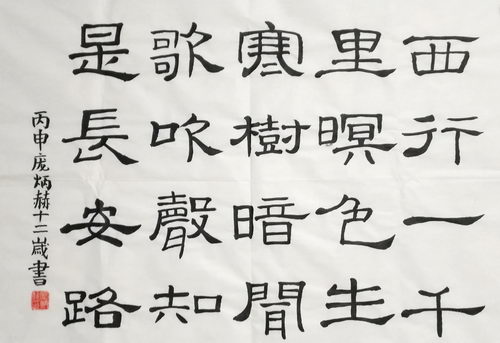 西行一千
里暝色生
寒樹暗聞
歌吹聲知
是長安路
丙申庞炳赫十二歲書